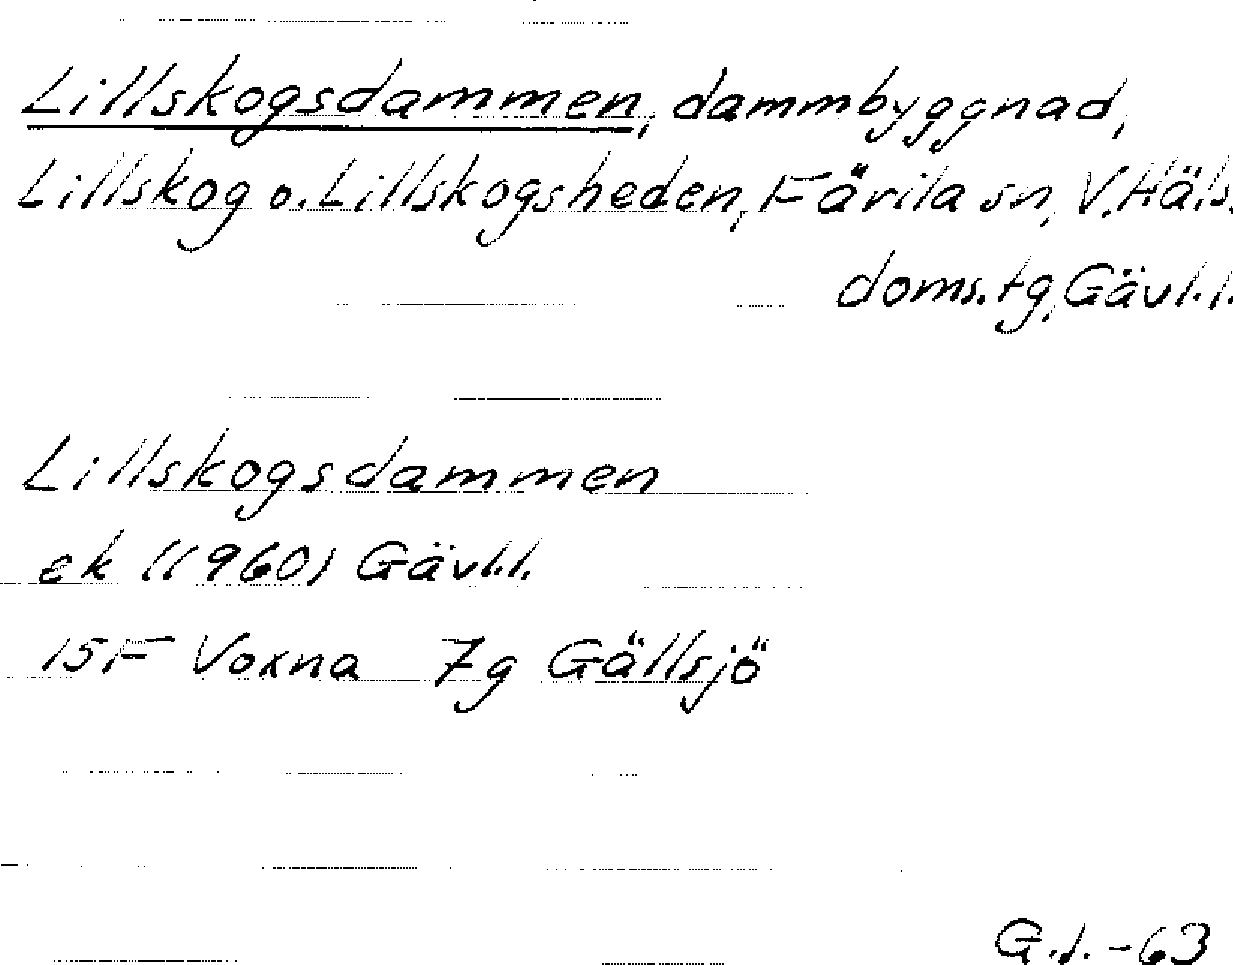 Lillskogsdammen, dammbyggnad,
Lillskog o. Lillskogsheden, Färila sn, V. Häls.
doms. tg, Gävl. l.
Lillskogsdammen
ek (1960) Gävl. l.
15F Voxna 7g Gällsjö
G. l. -63